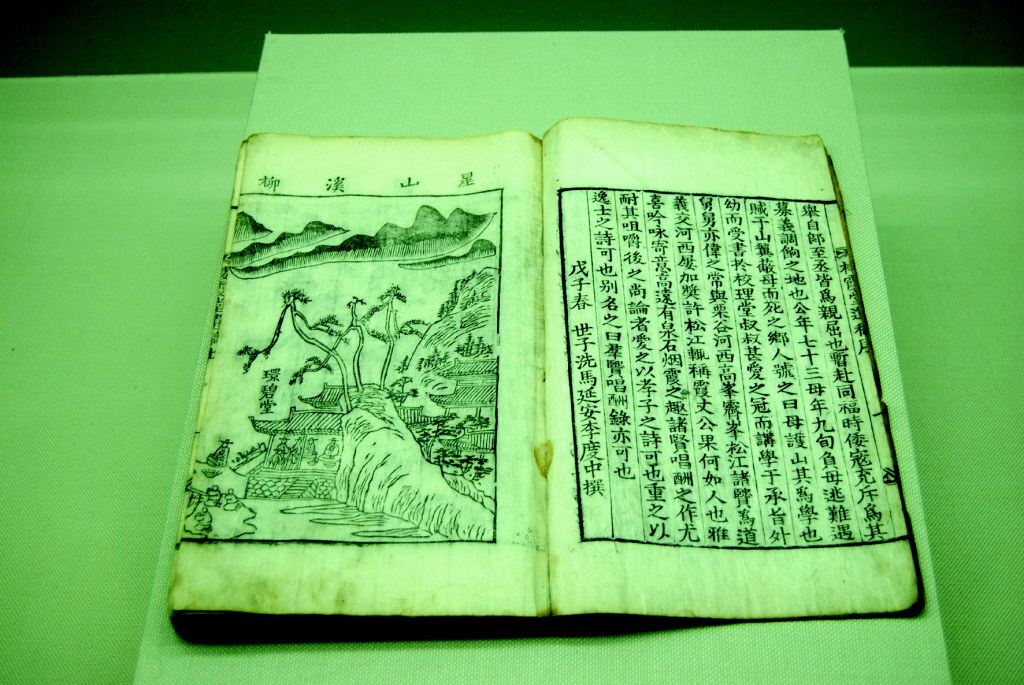 舉自郎至丞皆爲親屈也暫赴同福時倭寇充斥爲其
慕義調餉之地也公年七十三母年九旬負母逃難遇
賊于山翼蔽母而死之鄕人號之曰母護山其爲學也
幼而受書於校理堂叔叔甚愛之冠而講學于承旨外
舅舅亦偉之常與栗谷河西高峯霽峯松江諸賢爲道
義交河西屢加奬許松江輒稱霞丈公果何如人也雅
喜吟咏寄意高遠有泉石烟霞之趣諸賢唱酬之作尤
耐其咀嚼後之尙論者愛之以孝子之詩可也重之以
逸士之詩可也别名之曰羣賢唱酬錄亦可也
戊子春 世子洗馬延安李度中撰
星山溪柳
環碧堂